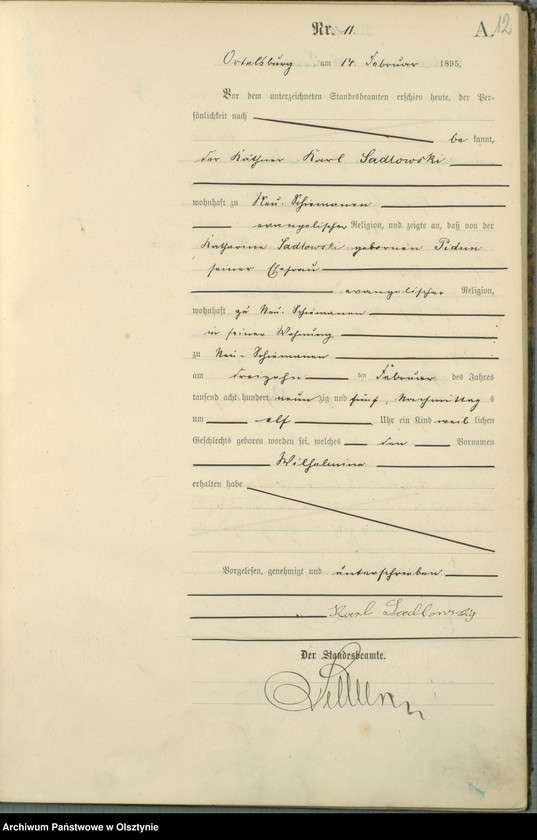 Nr. 11
A. 12
Ortelsburg, am 14 Februar 1895.
Vor dem unterzeichneten Standesbeamten erschien heute, der Per-
sönlichkeit nach
be kannt,
der Käthner Karl Sadlowski
wohnhaft zu Neu-Schiemanen
evangelischer Religion, und zeigte an, daß von der
Katharina Sadlowski geborenen Pidun
seiner Ehefrau
evangelischer Religion,
wohnhaft zu Neu-Schiemanen
in seiner Wohnung
zu Neu-Schiemanen
am dreizehn ten Februar des Jahres
tausend acht hundert neun zig und fünf, Nachmittag s
um elf Uhr ein Kind weib lichen
Geschlechts geboren worden sei, welches den Vornamen
Wilhelmine
erhalten habe
Vorgelesen, genehmigt und unterschrieben.
Karl Sadlowsky
Der Standesbeamte.
Archiwum Państwowe w Olsztynie